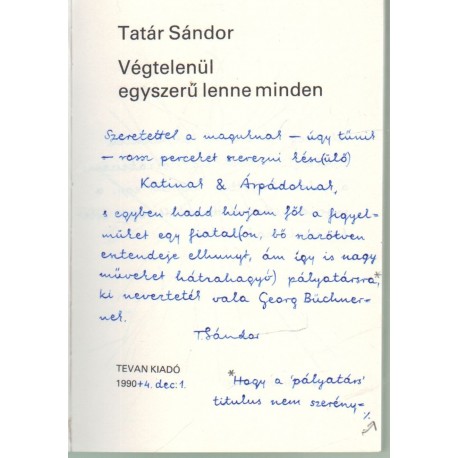 Tatár Sándor
Végtelenül
egyszerű lenne minden
Szeretettel a maguknak — úgy tűnik
— rossz perceket szerezni kén(ülő)
Katinak & Árpádoknak,
s egyben hadd hívjam föl a figyel-
müket egy fiatal(on, bő százötven
entendeje elhunyt, ám így is nagy
műveket hátrahagyó) pályatársra,*
ki nevezteték vala Georg Büchner-
nek.
TSándor
TEVAN KIADÓ
1990+4. dec: 1.
*Hogy a 'pályatárs'
titulus nem szerény-
%